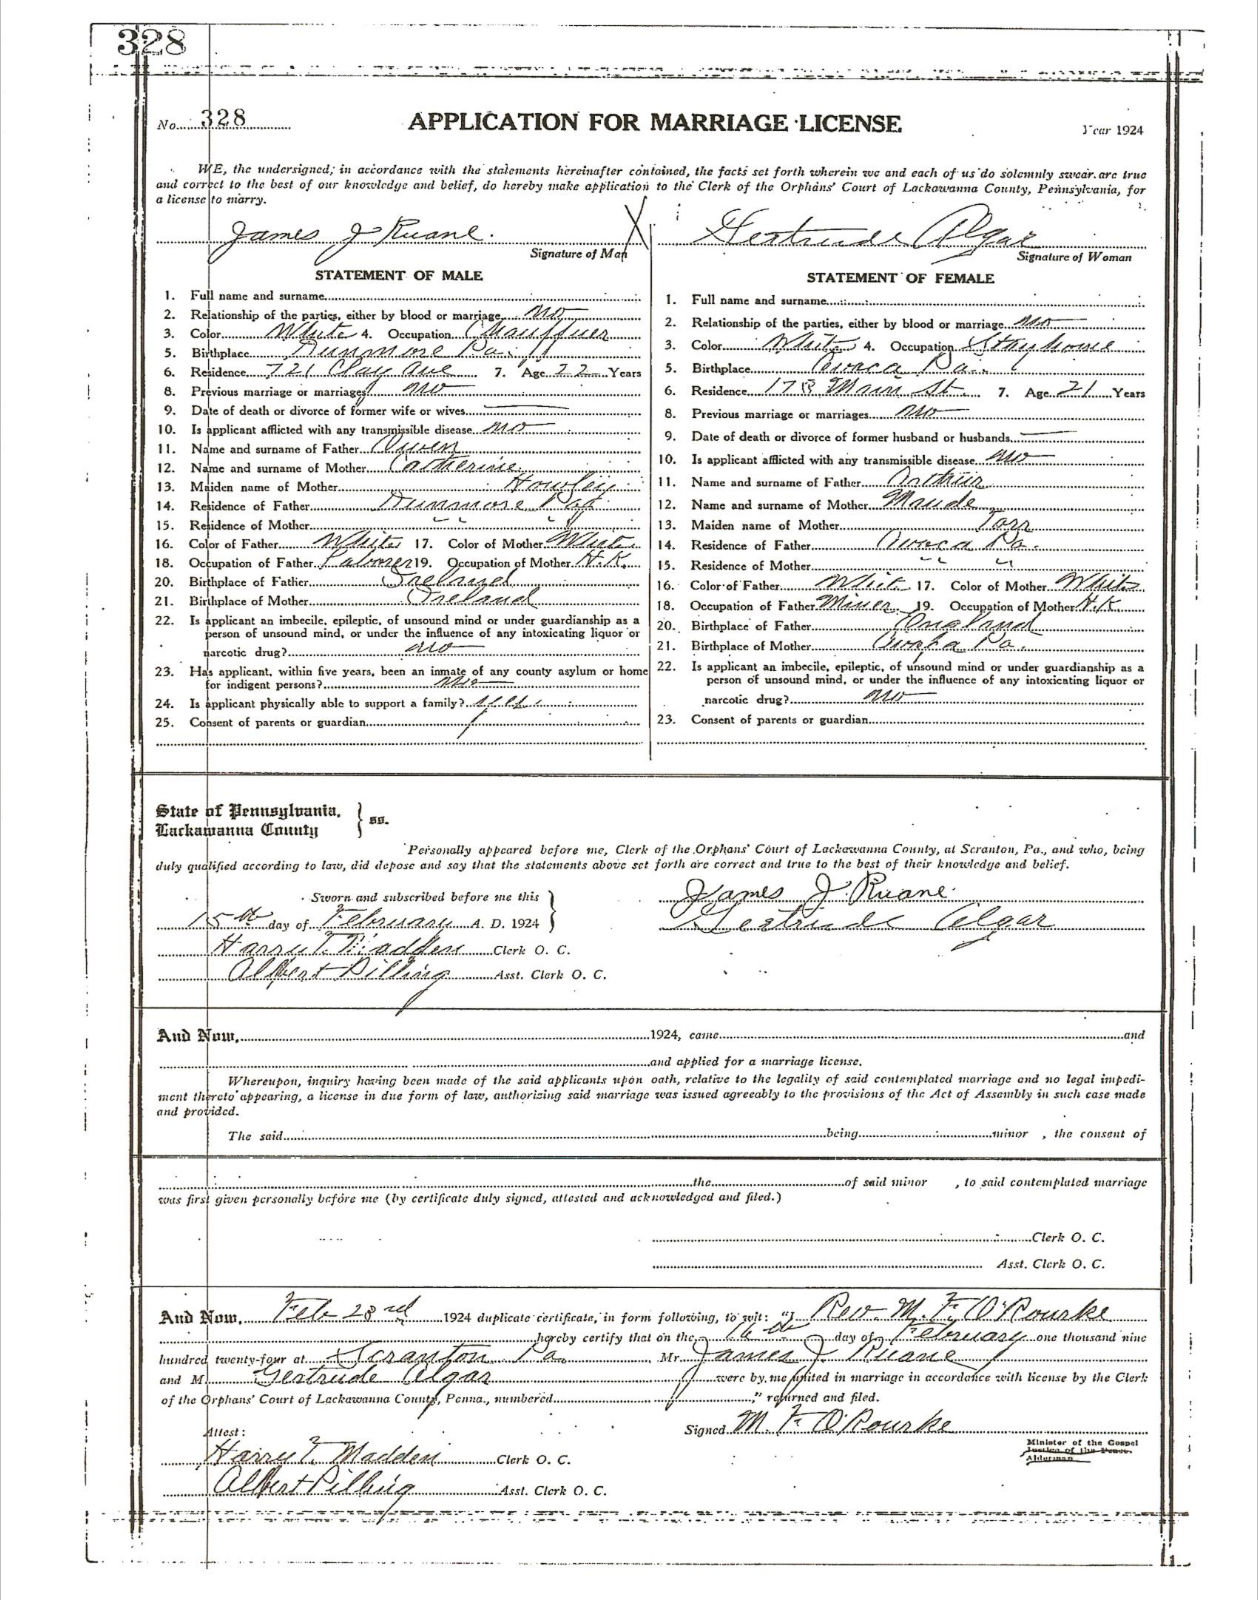 328
No. 328 APPLICATION FOR MARRIAGE LICENSE Year 1924
WE, the undersigned, in accordance with the statements hereinafter contained, the facts set forth wherein we and each of us do solemnly swear are true
and correct to the best of our knowledge and belief, do hereby make application to the Clerk of the Orphans' Court of Lackawanna County, Pennsylvania, for
a license to marry.
James J Ruane.
Signature of Man
STATEMENT OF MALE
1. Full name and surname
2. Relationship of the parties, either by blood or marriage, no
3. Color White 4. Occupation Chauffuer
5. Birthplace Dunmore Pa.
6. Residence 721 Clay Ave 7. Age 22 Years
8. Previous marriage or marriages no
9. Date of death or divorce of former wife or wives
10. Is applicant afflicted with any transmissible disease no
11. Name and surname of Father Owen
12. Name and surname of Mother Catherine
13. Maiden name of Mother Howley
14. Residence of Father Dunmore Pa
15. Residence of Mother " "
16. Color of Father White 17. Color of Mother White
18. Occupation of Father Laborer 19. Occupation of Mother H.K.
20. Birthplace of Father Ireland
21. Birthplace of Mother Ireland
22. Is applicant an imbecile, epileptic, of unsound mind or under guardianship as a
person of unsound mind, or under the influence of any intoxicating liquor or
narcotic drug? no
23. Has applicant, within five years, been an inmate of any county asylum or home
for indigent persons? no
24. Is applicant physically able to support a family? yes.
25. Consent of parents or guardian
Gertrude Algar
Signature of Woman
STATEMENT OF FEMALE
1. Full name and surname
2. Relationship of the parties, either by blood or marriage. no
3. Color White 4. Occupation Stayhome
5. Birthplace Avoca Pa.
6. Residence 173 Main St. 7. Age 21 Years
8. Previous marriage or marriages no
9. Date of death or divorce of former husband or husbands
10. Is applicant afflicted with any transmissible disease no
11. Name and surname of Father Arthur
12. Name and surname of Mother Maude
13. Maiden name of Mother Torr
14. Residence of Father Avoca Pa.
15. Residence of Mother " "
16. Color of Father White 17. Color of Mother White
18. Occupation of Father Miner 19. Occupation of Mother H.K
20. Birthplace of Father England
21. Birthplace of Mother Pa.
22. Is applicant an imbecile, epileptic, of unsound mind or under guardianship as a
person of unsound mind, or under the influence of any intoxicating liquor or
narcotic drug? no
23. Consent of parents or guardian
State of Pennsylvania,
Lackawanna County } ss.
Personally appeared before me, Clerk of the Orphans' Court of Lackawanna County, at Scranton, Pa., and who, being
duly qualified according to law, did depose and say that the statements above set forth are correct and true to the best of their knowledge and belief.
Sworn and subscribed before me this James J. Ruane.
15th day of February A. D. 1924 Gertrude Algar
Harry T. Madden Clerk O. C.
Albert Pilling Asst. Clerk O. C.
And Now, 1924, came and
and applied for a marriage license.
Whereupon, inquiry having been made of the said applicants upon oath, relative to the legality of said contemplated marriage and no legal impedi-
ment thereto appearing, a license in due form of law, authorizing said marriage was issued agreeably to the provisions of the Act of Assembly in such case made
and provided.
The said being minor , the consent of
the of said minor , to said contemplated marriage
was first given personally before me (by certificate duly signed, attested and acknowledged and filed.)
Clerk O. C.
Asst. Clerk O. C.
And Now, Feb 23rd 1924 duplicate certificate, in form following, to wit: "I Rev. M. F. O'Rourke
hereby certify that on the 16th day of February one thousand nine
hundred twenty-four at Scranton Pa. Mr James J. Ruane
and M Gertrude Algar were by me united in marriage in accordance with license by the Clerk
of the Orphans' Court of Lackawanna County, Penna., numbered ," returned and filed.
Signed M. F. O'Rourke
Attest: Minister of the Gospel
Justice of the Peace.
Alderman
Harry T. Madden Clerk O. C.
Albert Pilling Asst. Clerk O. C.